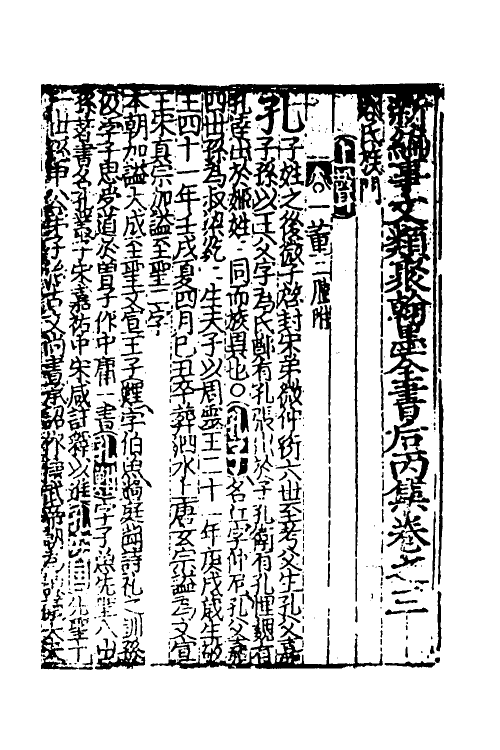 新編事文類聚翰墨全書后丙集卷之三
姓氏族門
上聲
一董 二腫附
孔 子姓之後微子啓封宋弟微仲衍六世至考父生孔父嘉
子孫以王父字為氏鄭有孔張出於子孔衛有孔悝姻有
孔達出於姬姓同而族異也〇孔子名丘字仲尼孔父嘉
四世孫為叔梁紇生夫子以周靈王二十一年庚戌歲生敬
王四十一年壬戌夏四月己丑卒葬泗水上唐玄宗謚為文宣
王宋真宗加謚至聖二字
本朝加謚大成至聖文宣王子鯉字伯魚過庭聞詩禮之訓孫
伋字子思受道於曾子作中庸一書 字子魚先聖八世
孫著書名孔叢子宋嘉祐中宋咸註釋以進 孔安國先聖十
一世孫申公弟子 古文尚書承詔作傳武帝